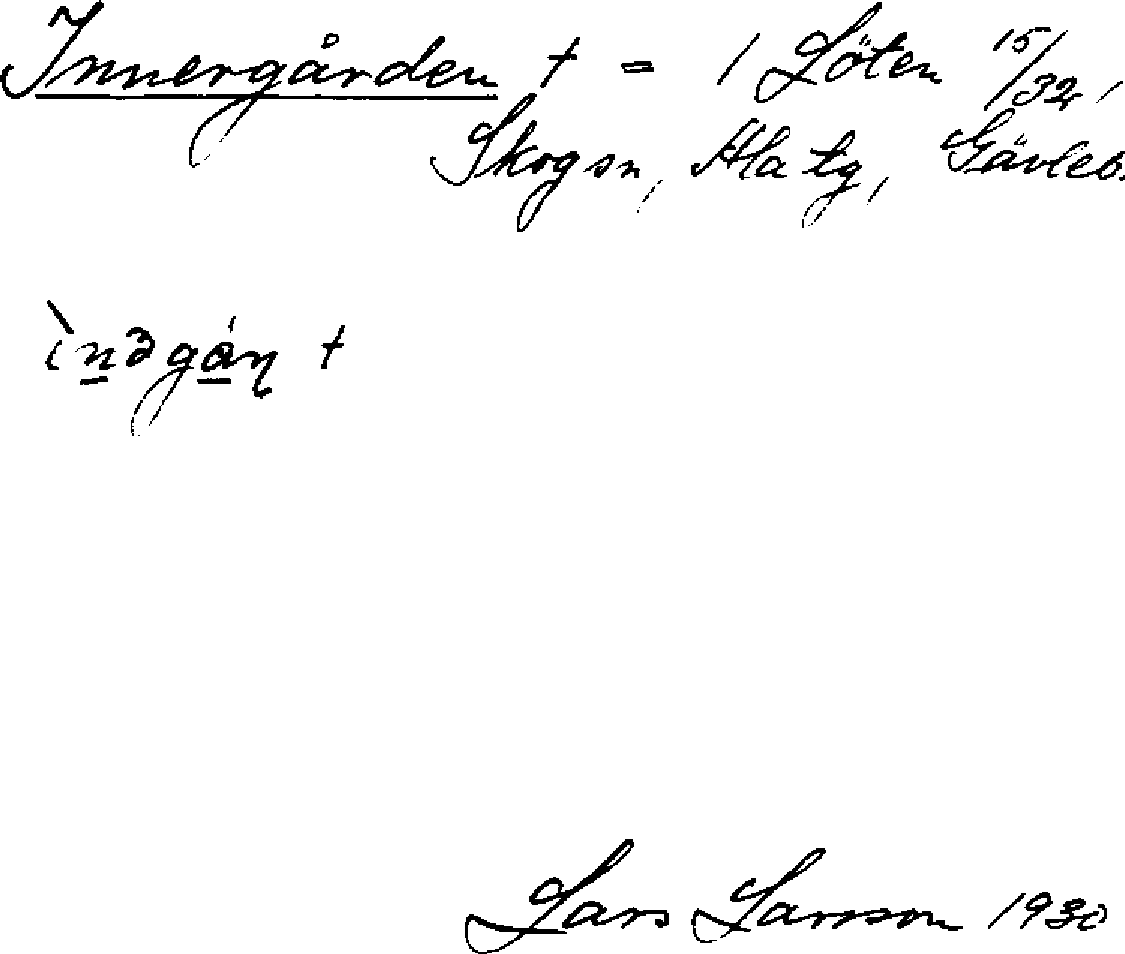 Innergården † = 1 Löten 15/32,
Skog sn, Ala tg, Gävleb.
ìnəgán †
Lars Larsson 1930